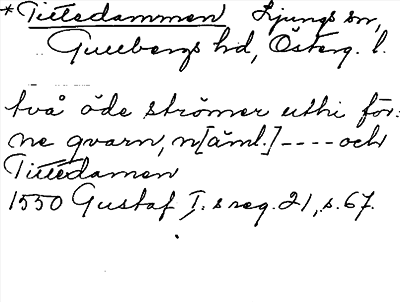 *Tittedammen Ljungs sn,
Gullbergs hd, Österg. l.
två öde strömer uthi för:
ne qvarn, n[äml.] ---- och
Tittedamen
1550 Gustaf I.s reg. 21, s. 67.